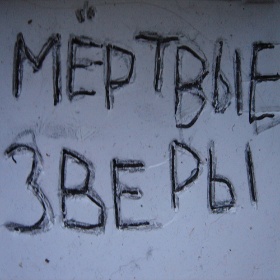 МЁРТВЫЕ
ЗВЕРЫ